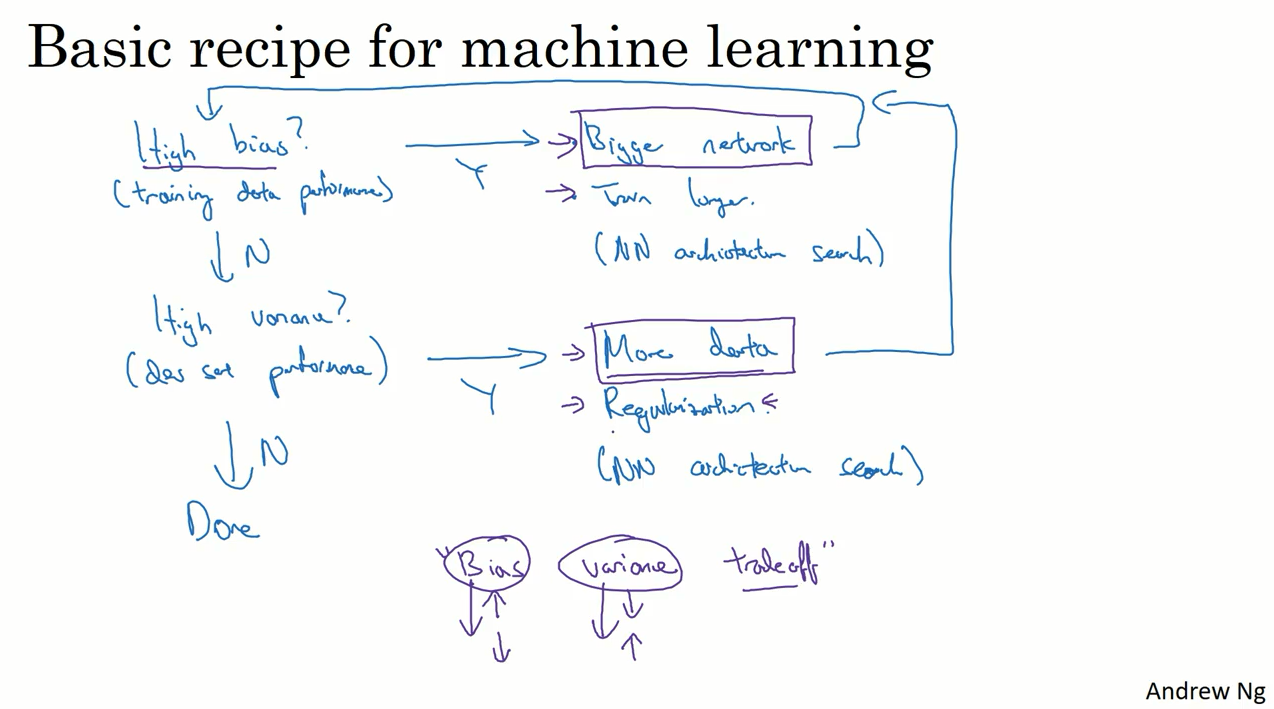 Basic recipe for machine learning
High bias?
(training data performance)
Y
Bigge network
Train longer.
(NN architecture search)
N
High variance?
(dev set performance)
Y
More data
Regularization.
(NN architecture search)
N
Done
"Bias variance tradeoff"
Andrew Ng